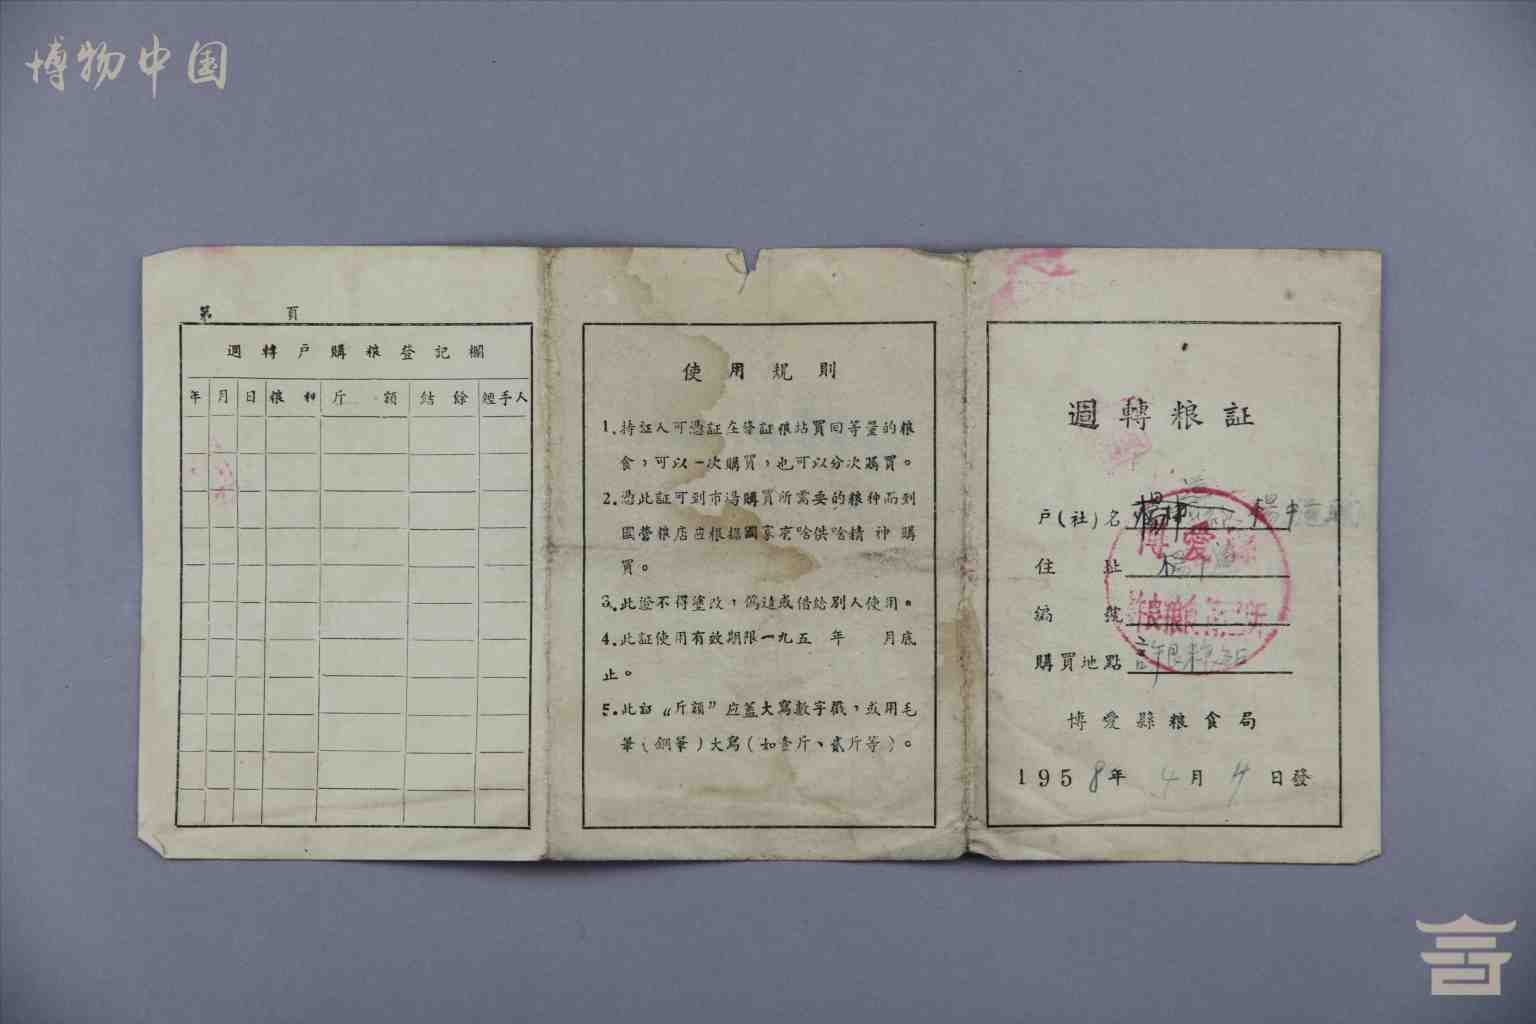 博物中国
第 頁
週轉户購粮登記欄
年 月 日 粮种 斤額 結餘 經手人
使用規則
1.持証人可憑証在發証粮站買回等量的粮
食，可以一次購買，也可以分次購買。
2.憑此証可到市場購買所需要的粮种而到
國营粮店应根據國家有啥供啥精神購
買。
3.此證不得塗改，偽造或借給别人使用。
4.此証使用有效期限一九五 年 月底
止。
5.此証“斤額”应蓋大寫數字戳，或用毛
筆（鋼筆）大寫（如壹斤、貳斤等）。
週轉粮証
户(社)名 楊中
住址 楊
編號
購買地點 許良粮站
博愛縣
許良粮
博愛縣粮食局
1958年4月4日發